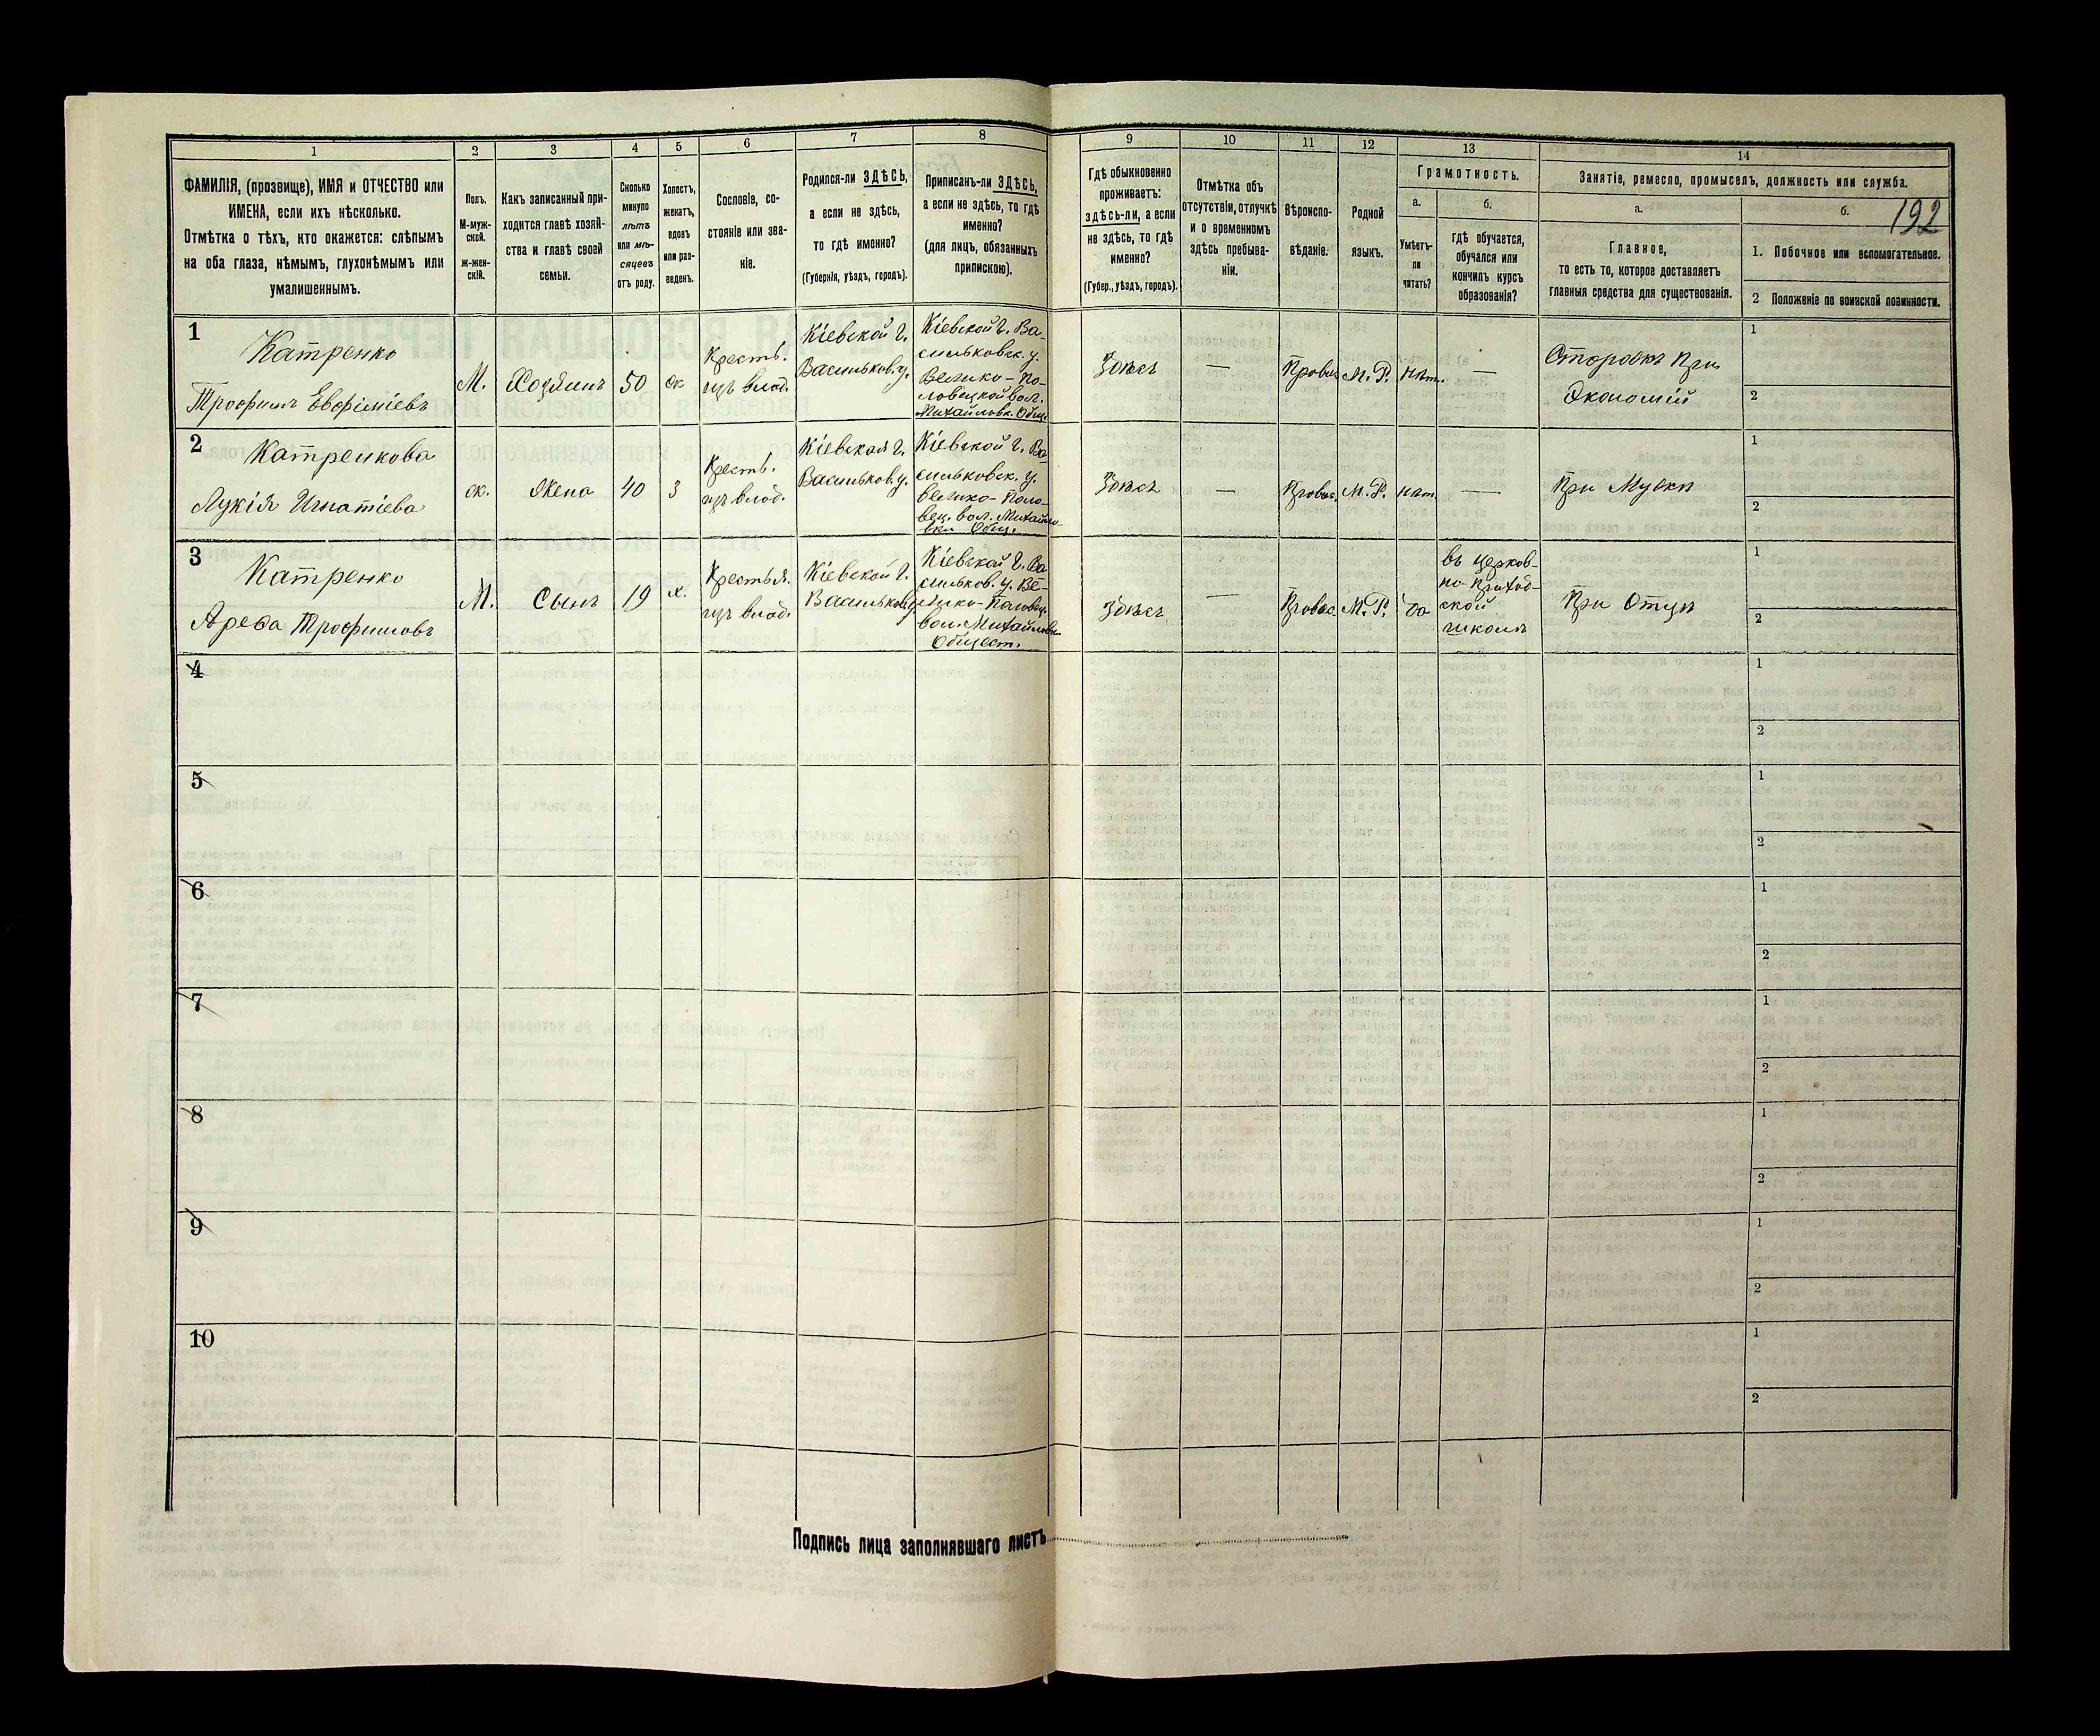 192
1
2
3
4
5
6
7
8
9
10
11
12
13
14
ФАМИЛІЯ, (прозвище), ИМЯ и ОТЧЕСТВО или
ИМЕНА, если ихъ нѣсколько.
Отмѣтка о тѣхъ, кто окажется: слѣпымъ
на оба глаза, нѣмымъ, глухонѣмымъ или
умалишеннымъ.
Полъ.
М-муж-
ской.
ж-жен-
скій.
Какъ записанный при-
ходится главѣ хозяй-
ства и главѣ своей
семьи.
Сколько
минуло
лѣтъ
или мѣ-
сяцевъ
отъ роду.
Холостъ,
женатъ,
вдовъ
или раз-
веденъ.
Сословіе, со-
стояніе или зва-
ніе.
Родился-ли ЗДѢСЬ,
а если не здѣсь,
то гдѣ именно?
(Губернія, уѣздъ, городъ).
Приписанъ-ли ЗДѢСЬ,
а если не здѣсь, то гдѣ
именно?
(для лицъ, обязанныхъ
припискою).
Гдѣ обыкновенно
проживаетъ:
здѣсь-ли, а если
не здѣсь, то гдѣ
именно?
(Губер., уѣздъ, городъ).
Отмѣтка объ
отсутствіи, отлучкѣ
и о временномъ
здѣсь пребыва-
ніи.
Вѣроиспо-
вѣданіе.
Родной
языкъ.
Грамотность.
а.
Умѣетъ-
ли
читать?
б.
гдѣ обучается,
обучался или
кончилъ курсъ
образованія?
Занятіе, ремесло, промыселъ, должность или служба.
а.
Главное,
то есть то, которое доставляетъ
главныя средства для существованія.
б.
1. Побочное или вспомогательное.
2 Положеніе по воинской повинности.
1
Катренко
Трофимъ Евфиміевъ
М.
Хозяинъ
50
ж
Кресть.
изъ влад.
Кіевской г.
Васильков. у.
Кіевской г. Ва-
сильковск. у.
Велико-По-
ловецкой вол.
Михайловк. Общ.
Здѣсь
—
Правос.
М. Р.
нѣт.
—
Сторожъ При
Экономіи
1
2
2
Катренкова
Лукія Игнатіева
ж.
Жена
40
З
Кресть.
изъ влад.
Кіевской г.
Васильков. у.
Кіевской г. Ва-
сильковск. у.
Велико-Поло-
вец. вол. Михайло-
вки Общ.
Здѣсь
—
Правос.
М. Р.
нѣт.
—
При Мужѣ
1
2
3
Катренко
Арефа Трофимовъ
М.
Сынъ
19
х.
Крестья.
изъ влад.
Кіевской г.
Васильков. у.
Кіевской г. Ва
сильков. у. Ве-
лико-Половец.
вол. Михайловк.
Общест.
Здѣсь
—
Правос.
М. Р.
да
въ церков-
но-приход-
ской
школѣ
При Отцѣ
1
2
4
1
2
5
1
2
6
1
2
7
1
2
8
1
2
9
1
2
10
1
2
Подпись лица заполнявшаго листъ